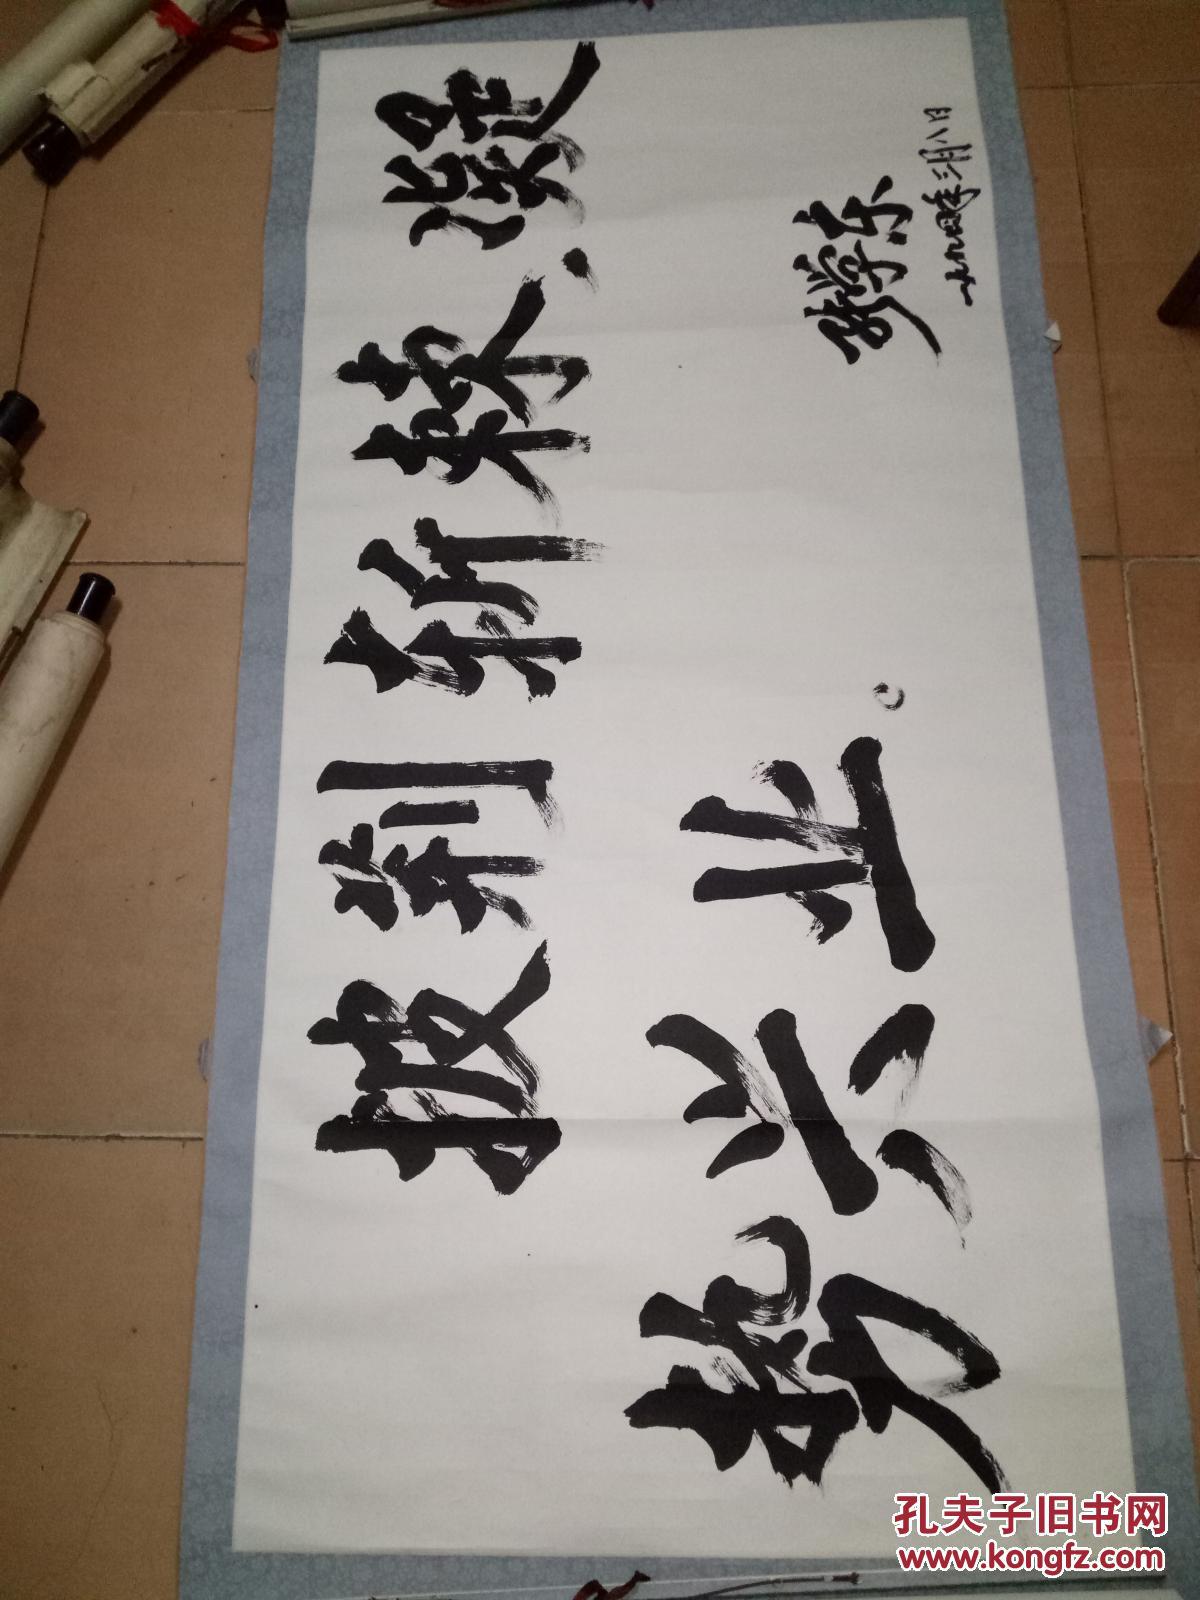 披荆斩棘、凝
势兴业。
张学东
一九九四年三月八日
孔夫子旧书网
www.kongfz.com